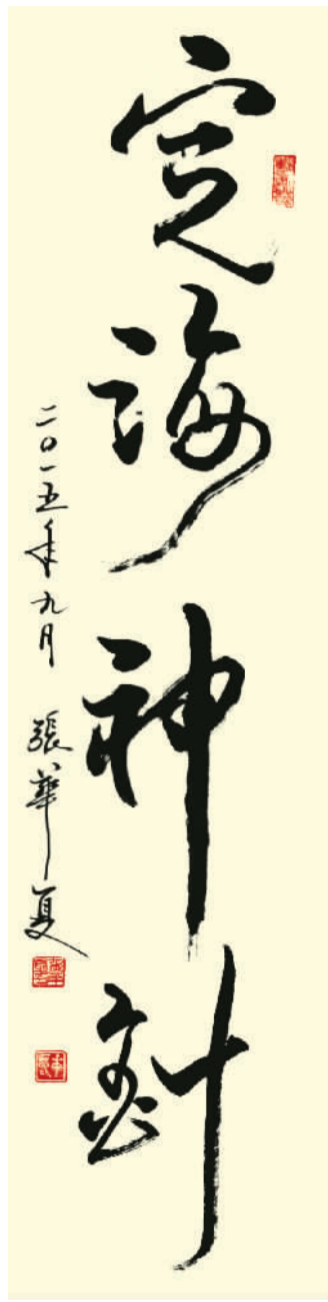 定海神針
二〇一五年九月 張華夏